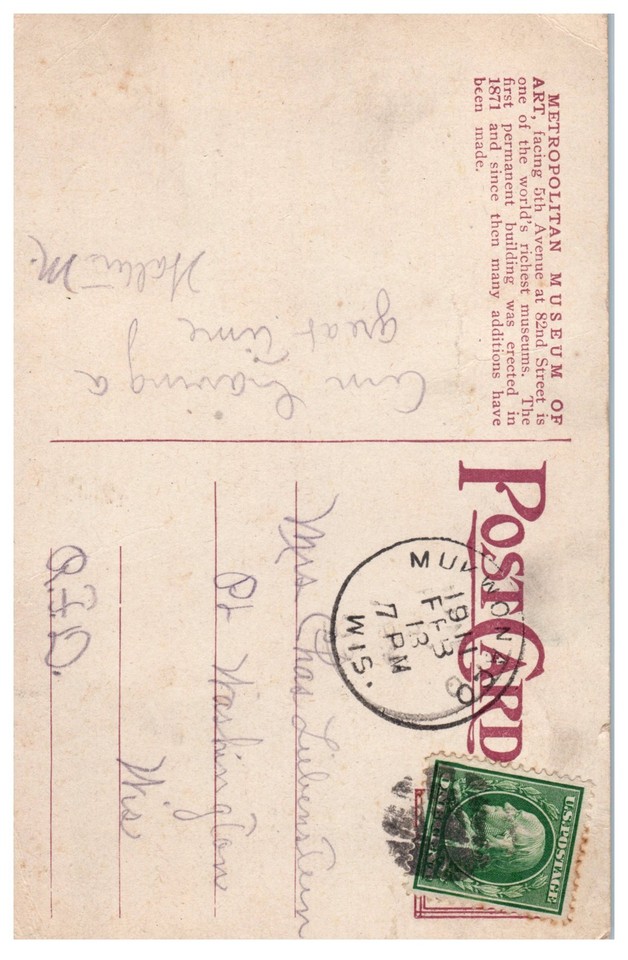 METROPOLITAN MUSEUM OF
ART, facing 5th Avenue at 82nd Street is
one of the world's richest museums. The
first permanent building was erected in
1871 and since then many additions have
been made.
Am having a
great time
M.
POST CARD
MUKWONAGO
1911
FEB
13
7 PM
WIS.
U.S. POSTAGE
Mrs Chas Liebenstein
Pt Washington
Wis
R.F.D.